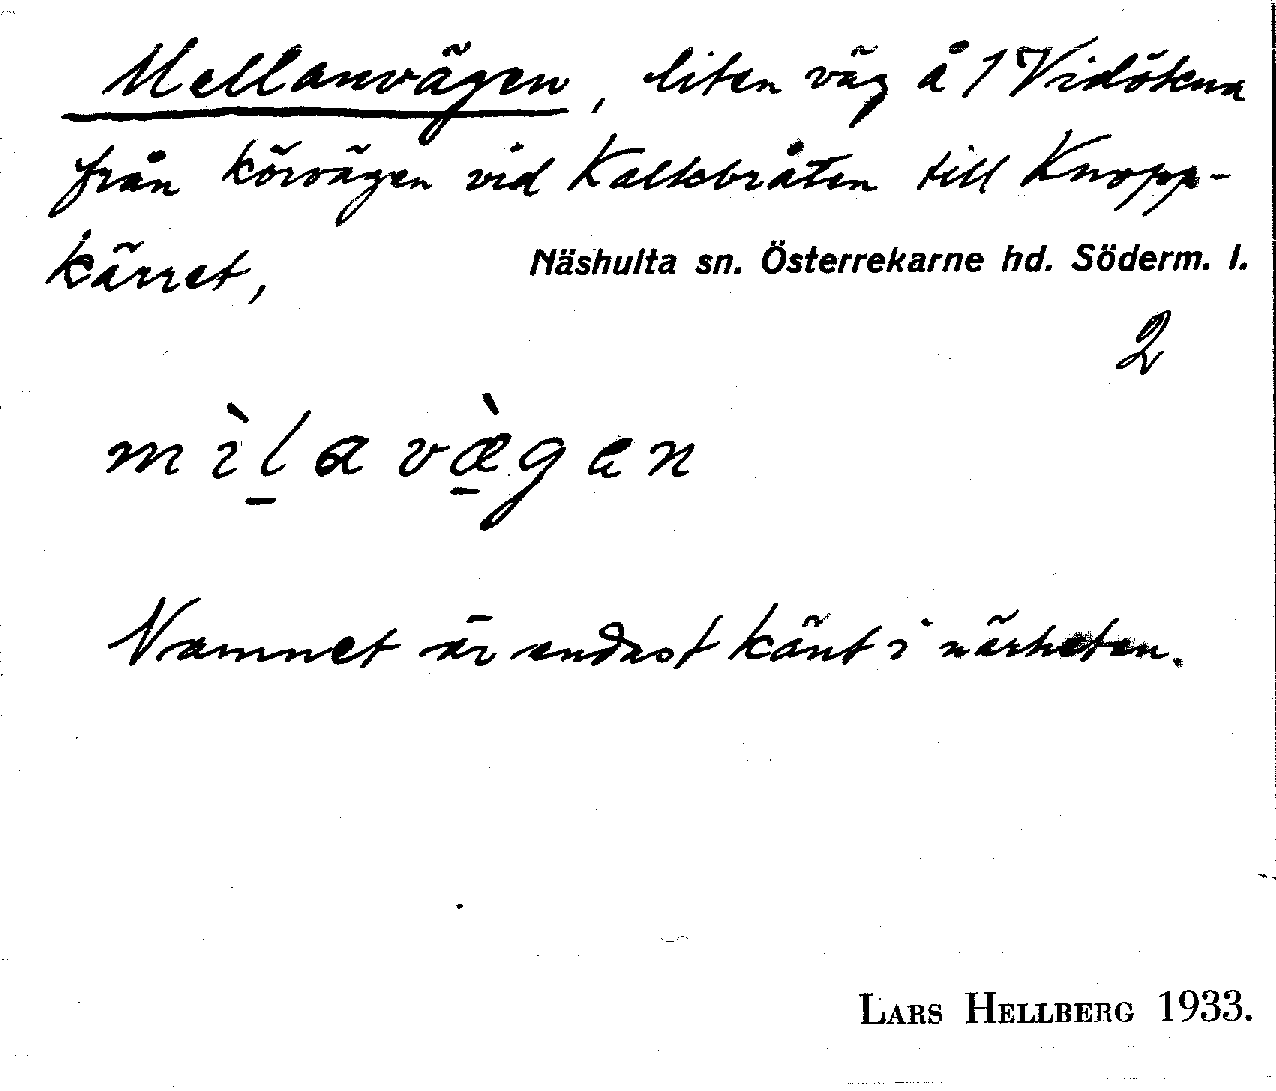 Mellanvägen, liten väg å 1 Vidökna
från körvägen vid Kalkbråten till Knopp-
kärret,
Näshulta sn. Österrekarne hd. Söderm. l.
2
mìl̲avæ̲̀gen
Namnet är endast känt i närheten.
LARS HELLBERG 1933.